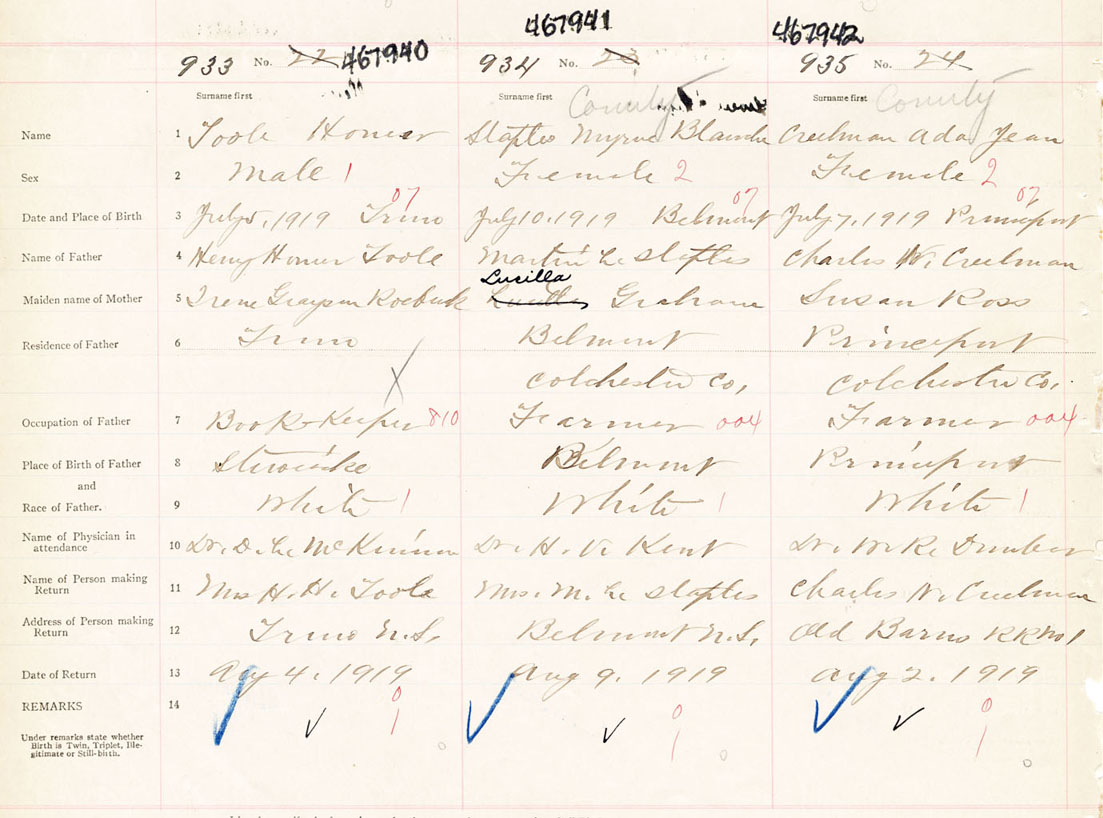 467941 467942
933 No. 22 467940 934 No. 23 935 No. 24
Surname first Surname first County Surname first County
Name 1 Toole Homer Staples Myrne Blanche Creelman Ada Jean
Sex 2 Male 1 Female 2 Female 2
07 07 07
Date and Place of Birth 3 July 5, 1919 Truro July 10, 1919 Belmont July 7, 1919 Princeport
Name of Father 4 Henry Homer Toole Martin Le Staples Charles W. Creelman
Lucilla
Maiden name of Mother 5 Irene Grayson Roebuck Graham Susan Ross
Residence of Father 6 Truro Belmont Princeport
X Colchester Co, Colchester Co,
Occupation of Father 7 Book-Keeper 810 Farmer 004 Farmer 004
Place of Birth of Father 8 Belmont Princeport
and
Race of Father. 9 White 1 White 1 White 1
Name of Physician in
attendance 10 Dr. D. McKinnon Dr. H. V. Kent Dr. Dunbar
Name of Person making
Return 11 Mrs H. H. Toole Mrs. M. Le Staples Charles N. Creelman
Address of Person making
Return 12 Truro N.S. Belmont N.S. Old Barns RR No 1
Date of Return 13 Aug 4, 1919 Aug 9, 1919 Aug 2, 1919
REMARKS 14 0 0 0
1 1 1
Under remarks state whether
Birth is Twin, Triplet, Ille-
gitimate or Still-birth.